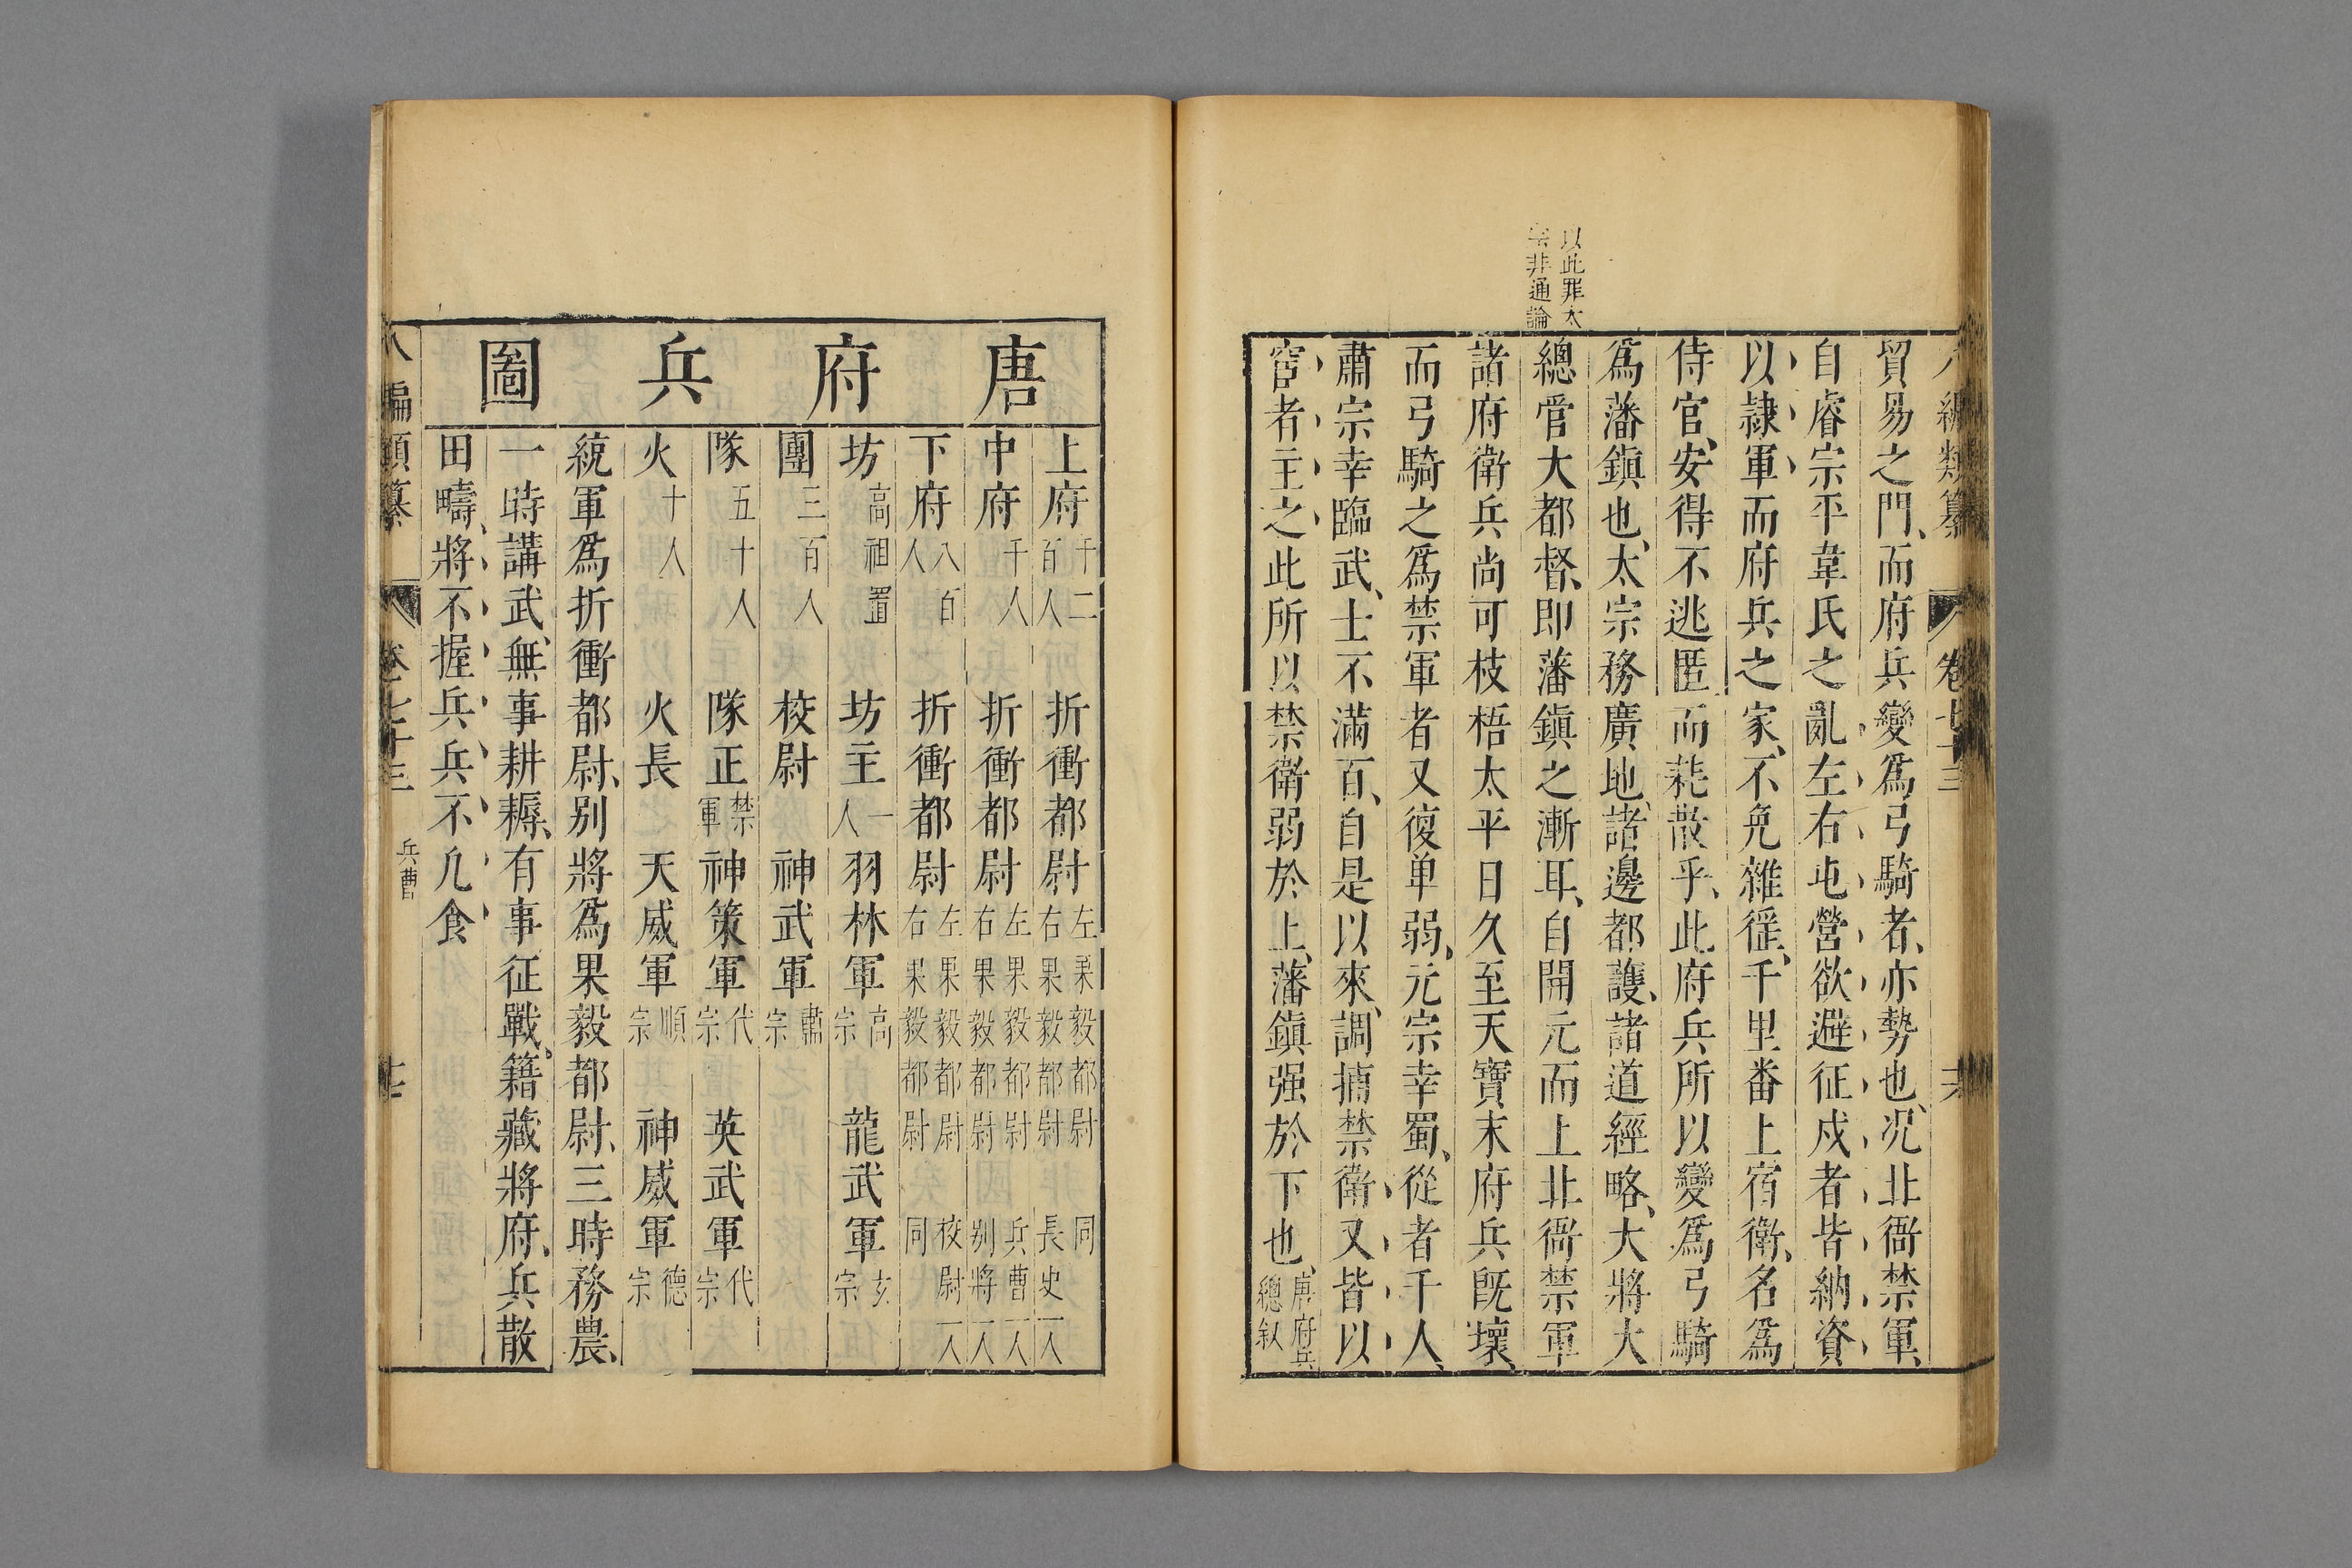 八編類纂 卷七十三
貿易之門、而府兵變爲弓騎者、亦勢也、况北衙禁軍、
自睿宗平韋氏之亂左右屯營欲避征戍者皆納資
以隷軍而府兵之家、不免雜徭、千里番上宿衛、名爲
侍官、安得不逃匿而耗散乎、此府兵所以變爲弓騎
爲藩鎮也、太宗務廣地、諸邊都護、諸道經略、大將大
以此罪太
宗非通論
總管大都督、即藩鎮之漸耳、自開元而上北衙禁軍
諸府衛兵尚可枝梧太平日久至天寶末府兵既壞、
而弓騎之爲禁軍者又復単弱、元宗幸蜀、從者千人、
肅宗幸臨武、士不滿百、自是以來、調揇禁衛又皆以
宦者主之此所以禁衛弱於上、藩鎮强於下也、唐府兵總叙
唐府兵圖
上府千二百人 折衝都尉左果毅都尉右果毅都尉 同長史一人
中府千人 折衝都尉左果毅都尉右果毅都尉 兵曹一人別將一人
下府八百人 折衝都尉左果毅都尉右果毅都尉 校尉一人同
坊高祖置 坊主一人 羽林軍高宗 龍武軍玄宗
團三百人 校尉 神武軍肅宗
隊五十人 隊正禁軍 神策軍代宗 英武軍代宗
火十人 火長 天威軍順宗 神威軍德宗
統軍爲折衝都尉、别將爲果毅都尉、三時務農、
一時講武、無事耕耨、有事征戰、籍藏將府、兵散
田疇、將不握兵、兵不凢食
八編類纂 卷七十三 兵曹 十七